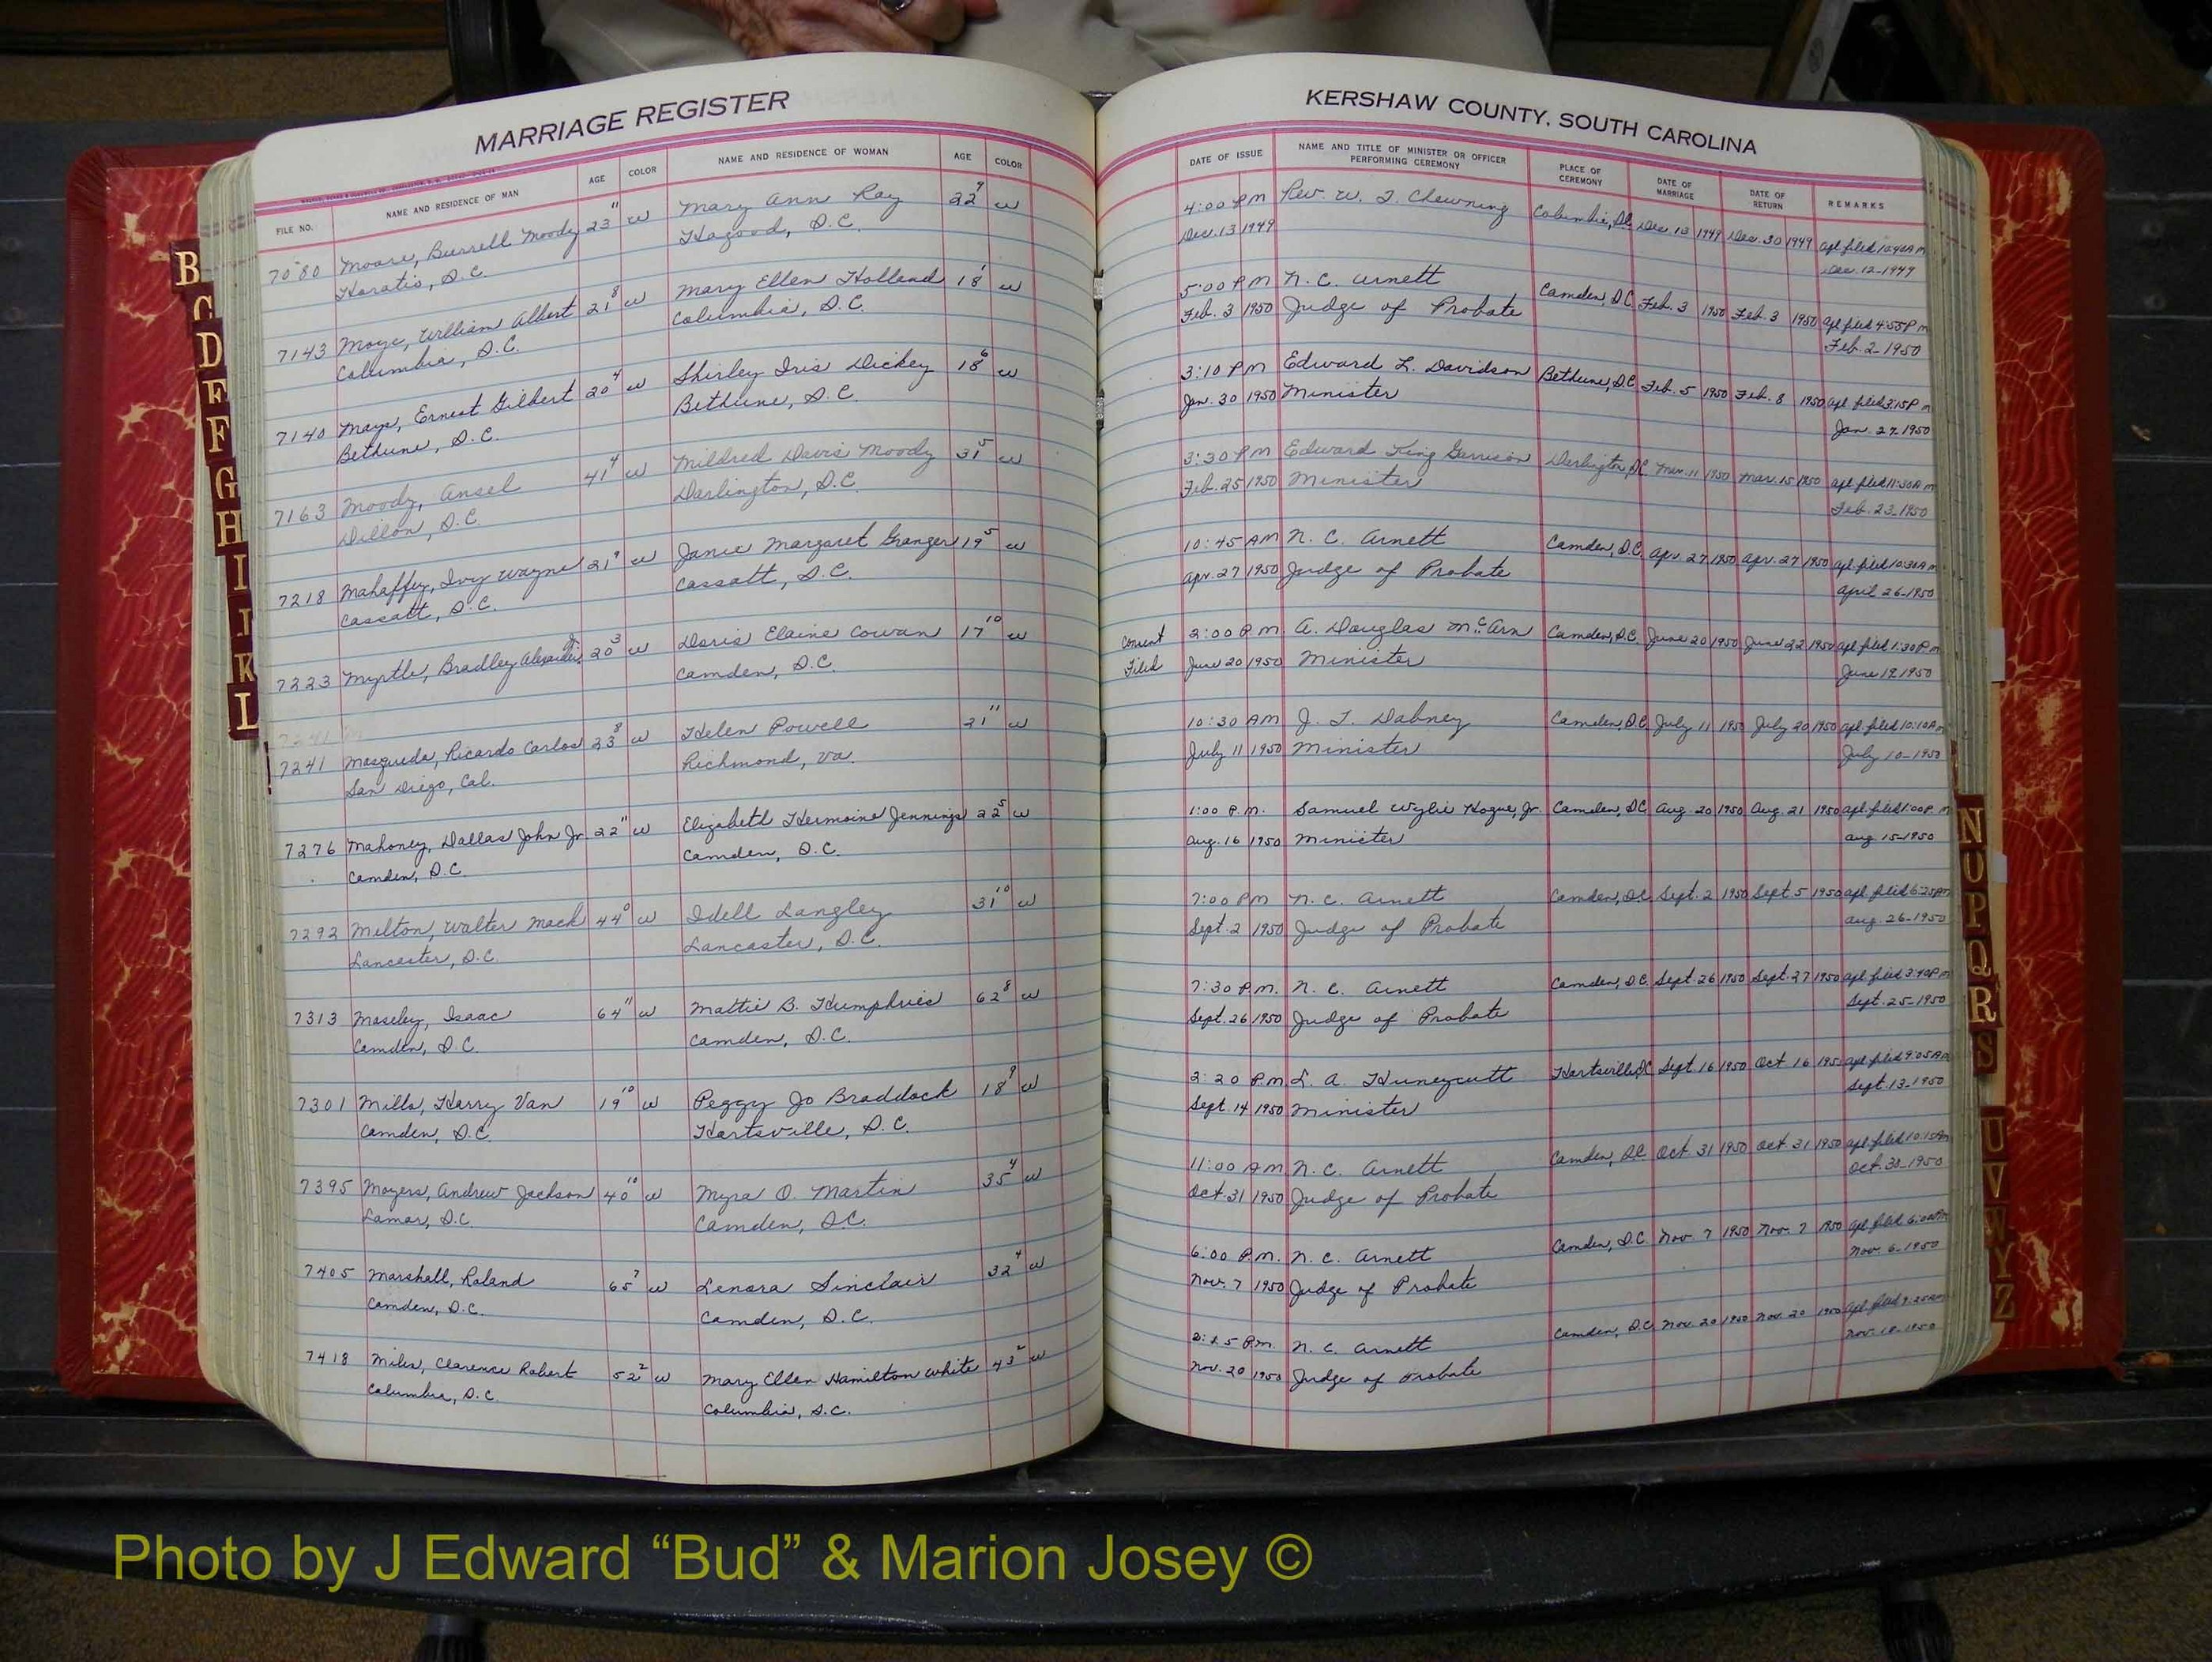 MARRIAGE REGISTER
KERSHAW COUNTY, SOUTH CAROLINA
FILE NO. NAME AND RESIDENCE OF MAN AGE COLOR NAME AND RESIDENCE OF WOMAN AGE COLOR
DATE OF ISSUE NAME AND TITLE OF MINISTER OR OFFICER PERFORMING CEREMONY PLACE OF CEREMONY DATE OF MARRIAGE DATE OF RETURN REMARKS
7080 Moore, Burrell Moody 23 11 W Mary Ann Ray 22 9 W 4:00 PM Rev. W. J. Chewning Columbia, S.C. Dec. 13 1949 Dec. 30 1949 apl. filed 10:40 AM
Horatio, S.C. Hagood, S.C. Dec. 13 1949 Dec. 12-1949
7143 Moye, William Albert 21 8 W Mary Ellen Holland 18 1 W 5:00 PM N. C. Arnett Camden, S.C. Feb. 3 1950 Feb. 3 1950 apl. filed 4:55 P.M
Columbia, S.C. Columbia, S.C. Feb. 3 1950 Judge of Probate Feb. 2-1950
7140 Mays, Ernest Gilbert 20 4 W Shirley Iris Dickey 18 6 W 3:10 PM Edward L. Davidson Bethune, S.C. Feb. 5 1950 Feb. 8 1950 apl. filed 3:15 P.M
Bethune, S.C. Bethune, S.C. Jan. 30 1950 Minister Jan. 27-1950
7163 Moody, Ansel 41 4 W Mildred Davis Moody 31 5 W 3:30 PM Edward King Garrison Darlington, S.C. Mar. 11 1950 Mar. 15 1950 apl. filed 11:30 AM
Dillon, S.C. Darlington, S.C. Feb. 25 1950 Minister Feb. 23-1950
7218 Mahaffey, Ivy Wayne 21 9 W Janie Margaret Granger 19 5 W 10:45 AM N. C. Arnett Camden, S.C. Apr. 27 1950 Apr. 27 1950 apl. filed 10:30 AM
Cassatt, S.C. Cassatt, S.C. Apr. 27 1950 Judge of Probate April 26-1950
7223 Myrtle, Bradley Alexander, Jr. 20 3 W Doris Elaine Cowan 17 10 W Consent 2:00 P.M A. Douglas McArn Camden, S.C. June 20 1950 June 22 1950 apl. filed 1:30 P.M
Camden, S.C. Filed June 20 1950 Minister June 19-1950
7241 Mosqueda, Ricardo Carlos 23 8 W Helen Powell 21 11 W 10:30 AM J. T. Dabney Camden, S.C. July 11 1950 July 20 1950 apl. filed 10:10 AM
San Diego, Cal. Richmond, Va. July 11 1950 Minister July 10-1950
7276 Mahoney, Dallas John Jr. 22 11 W Elizabeth Hermoine Jennings 22 5 W 1:00 P.M. Samuel Wylie Hogue, Jr. Camden, S.C. Aug. 20 1950 Aug. 21 1950 apl. filed 1:00 P.M
Camden, S.C. Camden, S.C. Aug. 16 1950 Minister Aug. 15-1950
7292 Melton, Walter Mack 44 0 W Idell Langley 31 10 W 7:00 PM N. C. Arnett Camden, S.C. Sept. 2 1950 Sept 5 1950 apl. filed 6:25 PM
Lancaster, S.C. Lancaster, S.C. Sept. 2 1950 Judge of Probate Aug. 26-1950
7313 Moseley, Isaac 64 11 W Mattie B. Humphries 62 8 W 7:30 P.M. N. C. Arnett Camden, S.C. Sept. 26 1950 Sept. 27 1950 apl. filed 3:40 P.M
Camden, S.C. Camden, S.C. Sept. 26 1950 Judge of Probate Sept. 25-1950
7301 Mills, Harry Van 19 10 W Peggy Jo Braddock 18 9 W 2:20 P.M L. A. Huneycutt Hartsville, S.C. Sept. 16 1950 Oct 16 1950 apl. filed 9:05 AM
Camden, S.C. Hartsville, S.C. Sept. 14 1950 Minister Sept. 13-1950
7395 Moyers, Andrew Jackson 40 10 W Myra O. Martin 35 4 W 11:00 AM N. C. Arnett Camden, S.C. Oct 31 1950 Oct. 31 1950 apl. filed 10:15 AM
Lamar, S.C. Camden, S.C. Oct. 31 1950 Judge of Probate Oct. 30-1950
7405 Marshall, Roland 65 7 W Lenora Sinclair 32 4 W 6:00 P.M. N. C. Arnett Camden, S.C. Nov. 7 1950 Nov. 7 1950 apl. filed 6:00 PM
Camden, S.C. Camden, S.C. Nov. 7 1950 Judge of Probate Nov. 6-1950
7418 Miles, Clarence Robert 52 2 W Mary Ellen Hamilton White 43 2 W 2:25 P.M. N. C. Arnett Camden, S.C. Nov. 20 1950 Nov. 20 1950 apl. filed 9:25 AM
Columbia, S.C. Columbia, S.C. Nov. 20 1950 Judge of Probate Nov. 18-1950
B
C
D
E
F
G
H
I
J
K
L
N
O
P
Q
R
S
U
V
W
Y
Z
Photo by J Edward “Bud” & Marion Josey ©